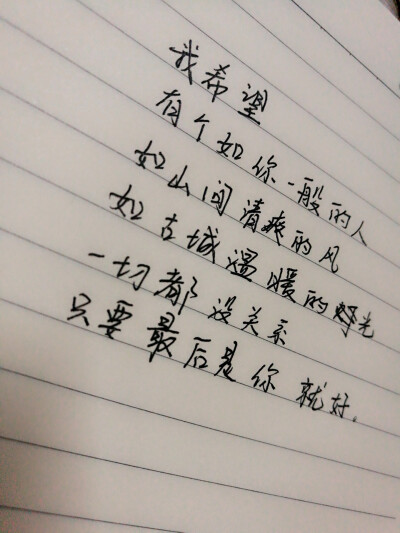 我希望
有个如你一般的人
如山间清爽的风
如古城温暖的灯光
一切都没关系
只要最后是你就好.